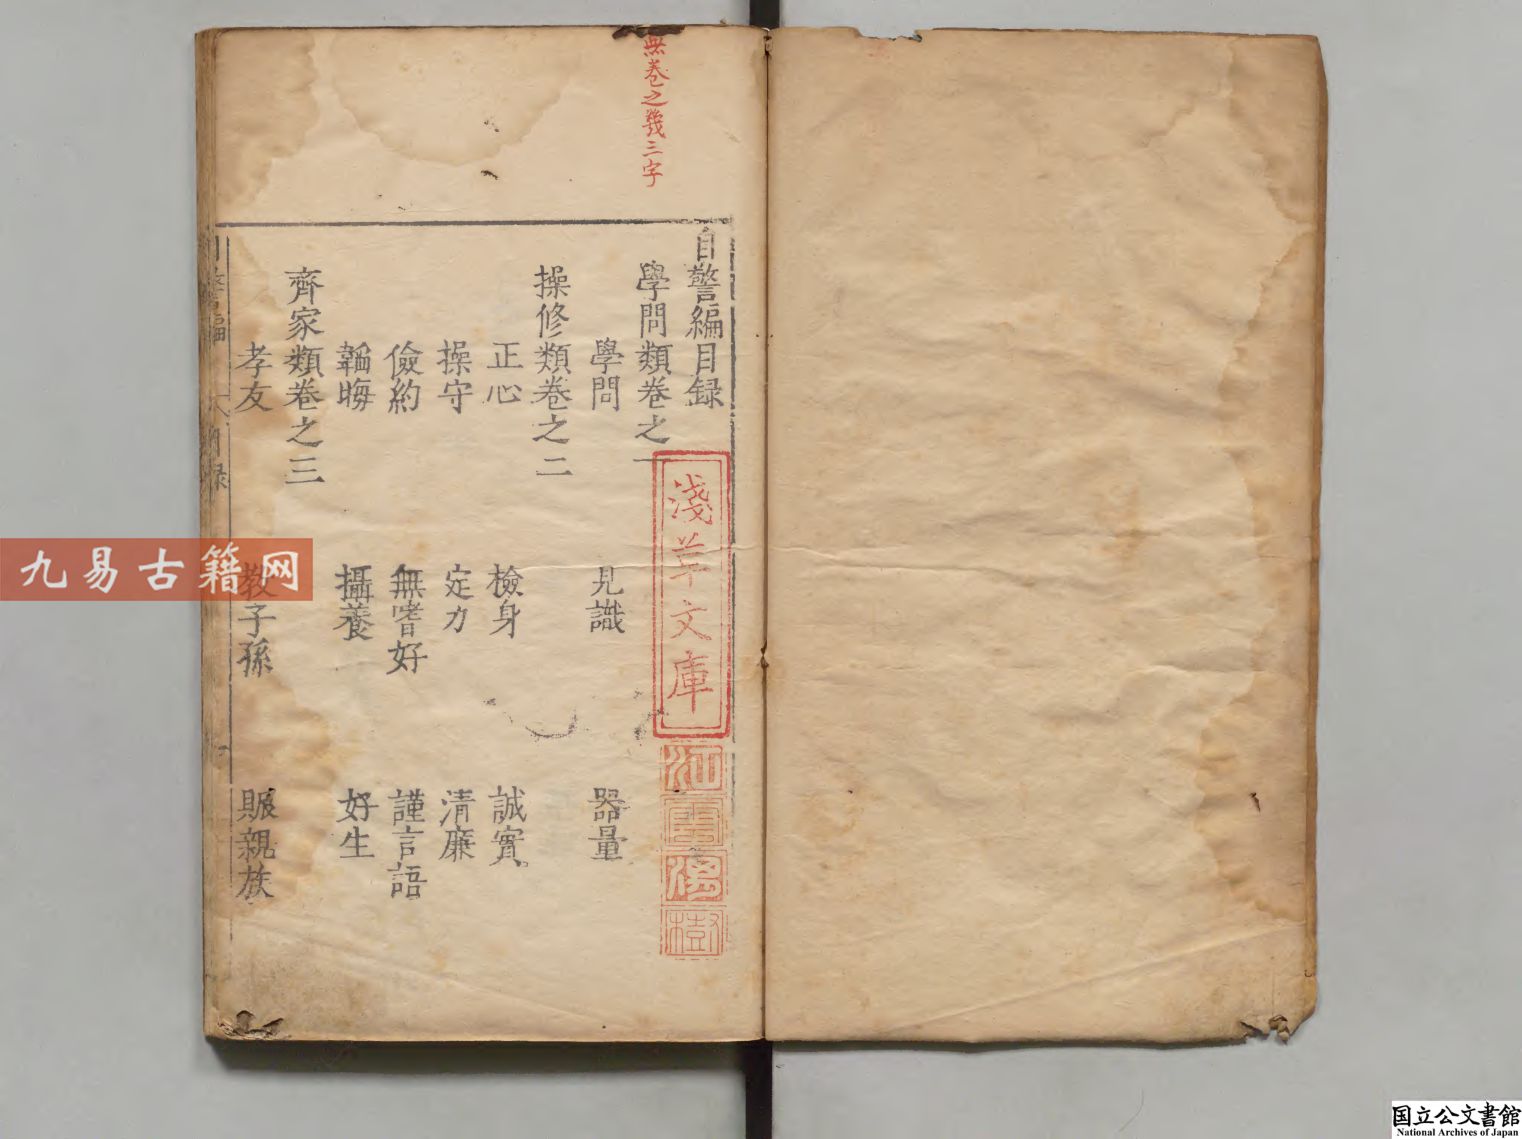 無卷之幾三字
自警編目録
學問類卷之一
學問　見識　器量
操修類卷之二
正心　檢身　誠實
操守　定力　清廉
儉約　無嗜好　謹言語
韜晦　攝養　好生
齊家類卷之三
孝友　教子孫　賑親族
淺草文庫
江雲渭樹
九易古籍网
国立公文書館
National Archives of Japan